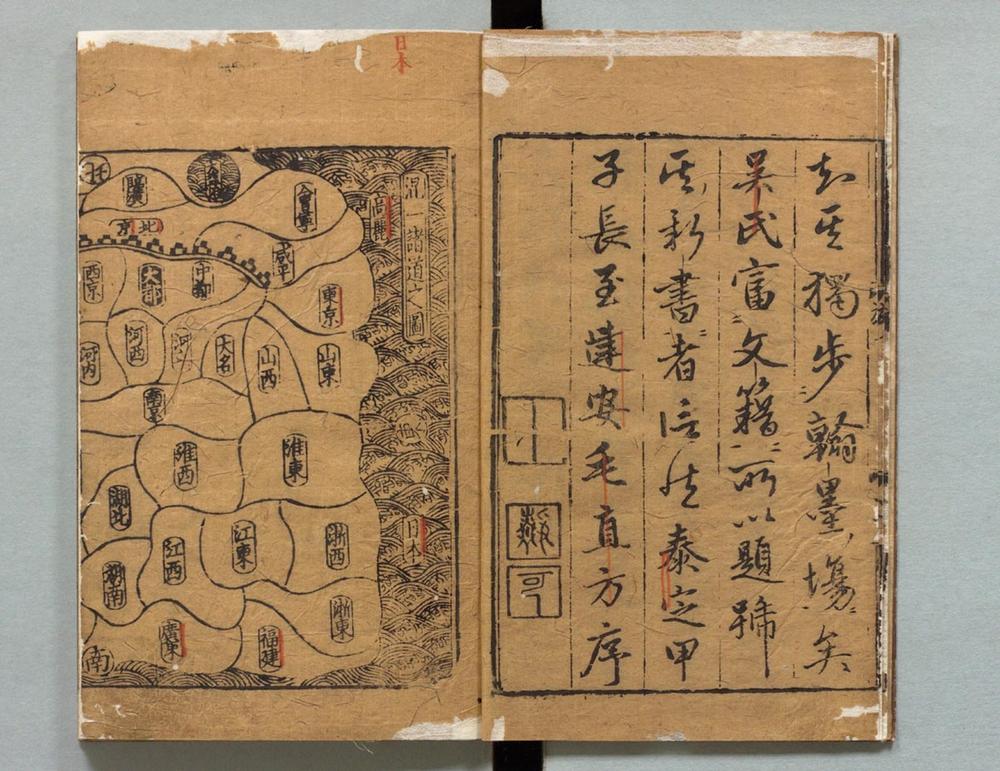 知其獨步翰墨塲矣
吴氏富文籍所以題號
其新書者信然泰定甲
子長至建安毛直方序
日本
混一諸道之圖
高麗
日本
會寧
咸平
東京
山東
山西
大名
中都
大都
北京
西京
河西
河內
南京
淮東
淮西
浙西
江東
湖北
江西
湖南
浙東
福建
廣東
南
北